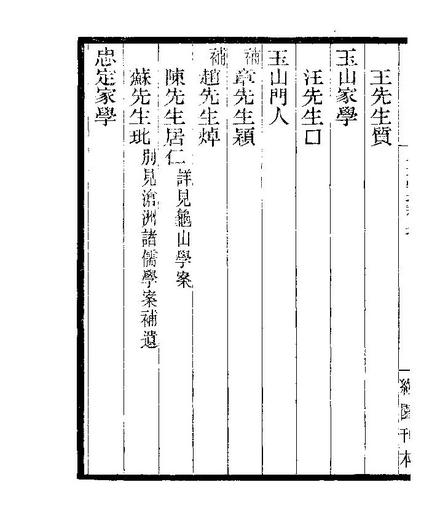 王先生質
玉山家學
汪先生口
玉山門人
補章先生穎
補趙先生焯
陳先生居仁詳見龜山學案
蘇先生玭別見滄洲諸儒學案補遺
忠定家學
約園刊本